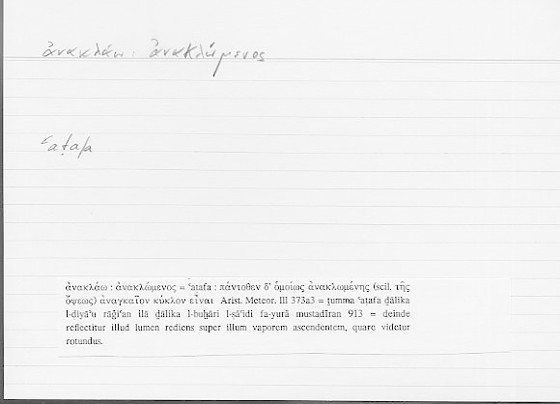 ἀνακλάω : ἀνακλώμενος
ʿaṭafa
ἀνακλάω : ἀνακλώμενος = ʿaṭafa : πάντοθεν δ' ὁμοίως ἀνακλωμένης (scil. τῆς
ὄψεως) ἀναγκαῖον κύκλον εἶναι Arist. Meteor. III 373a3 = ṯumma ʿaṭafa ḏālika
l-ḍiyāʾu rāǧiʿan ilā ḏālika l-buḫāri l-ṣāʿidi fa-yurā mustadīran 913 = deinde
reflectitur illud lumen rediens super illum vaporem ascendentem, quare videtur
rotundus.